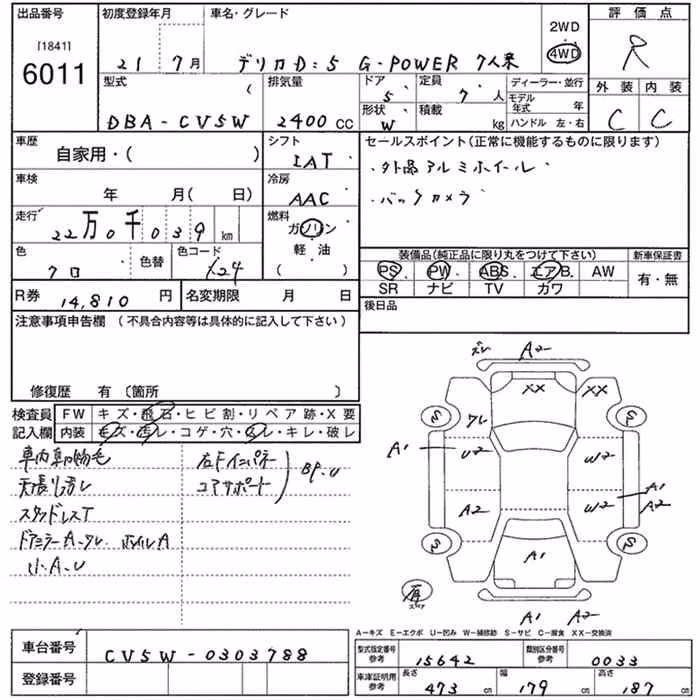 出品番号 初度登録年月 車名・グレード 2WD 評価点
[1841] 6011 21 7月 デリカD:5 G-POWER 7人乗 4WD R
型式 ( 排気量 ドア 定員 ディーラー・並行 外装 内装
DBA-CV5W 2400 CC 5 7人 モデル年式 年 C C
形状 W 積載 kg ハンドル 左・右
車歴 シフト セールスポイント(正常に機能するものに限ります)
自家用・( ) IAT ・外品アルミホイール
車検 冷房 ・バックカメラ
年 月( 日) AAC
走行 燃料
22万0千039km ガソリン
色 色替 色コード 軽油 装備品(純正品に限り丸をつけて下さい) 新車保証書
クロ X24 ( ) PS PW ABS エアB. AW 有・無
SR ナビ TV カワ
R券 14,810円 名変期限 月 日 後日品
注意事項申告欄 (不具合内容等は具体的に記入して下さい)
修復歴 有〔箇所 〕
検査員 FW キズ・飛石・ヒビ割・リペア跡・X要
記入欄 内装 キズ・汚レ・コゲ・穴・スレ・キレ・破レ
天張り汚レ コアサポート BP.U
スタッドレスT
ドアミラーA・クレ ホイルA
小A・U
A2
XX XX
S クレ S
A1 U2 W2
A2 W2 A1 A2
S A1 S
A1 A2
A-キズ E-エクボ U-凹み W-補修跡 S-サビ C-腐食 XX-交換済
車台番号 CV5W-0303788 型式指定番号 参考 15642 類別区分番号 参考 0033
登録番号 車庫証明用 参考 長さ 473 cm 幅 179 cm 高さ 187 cm